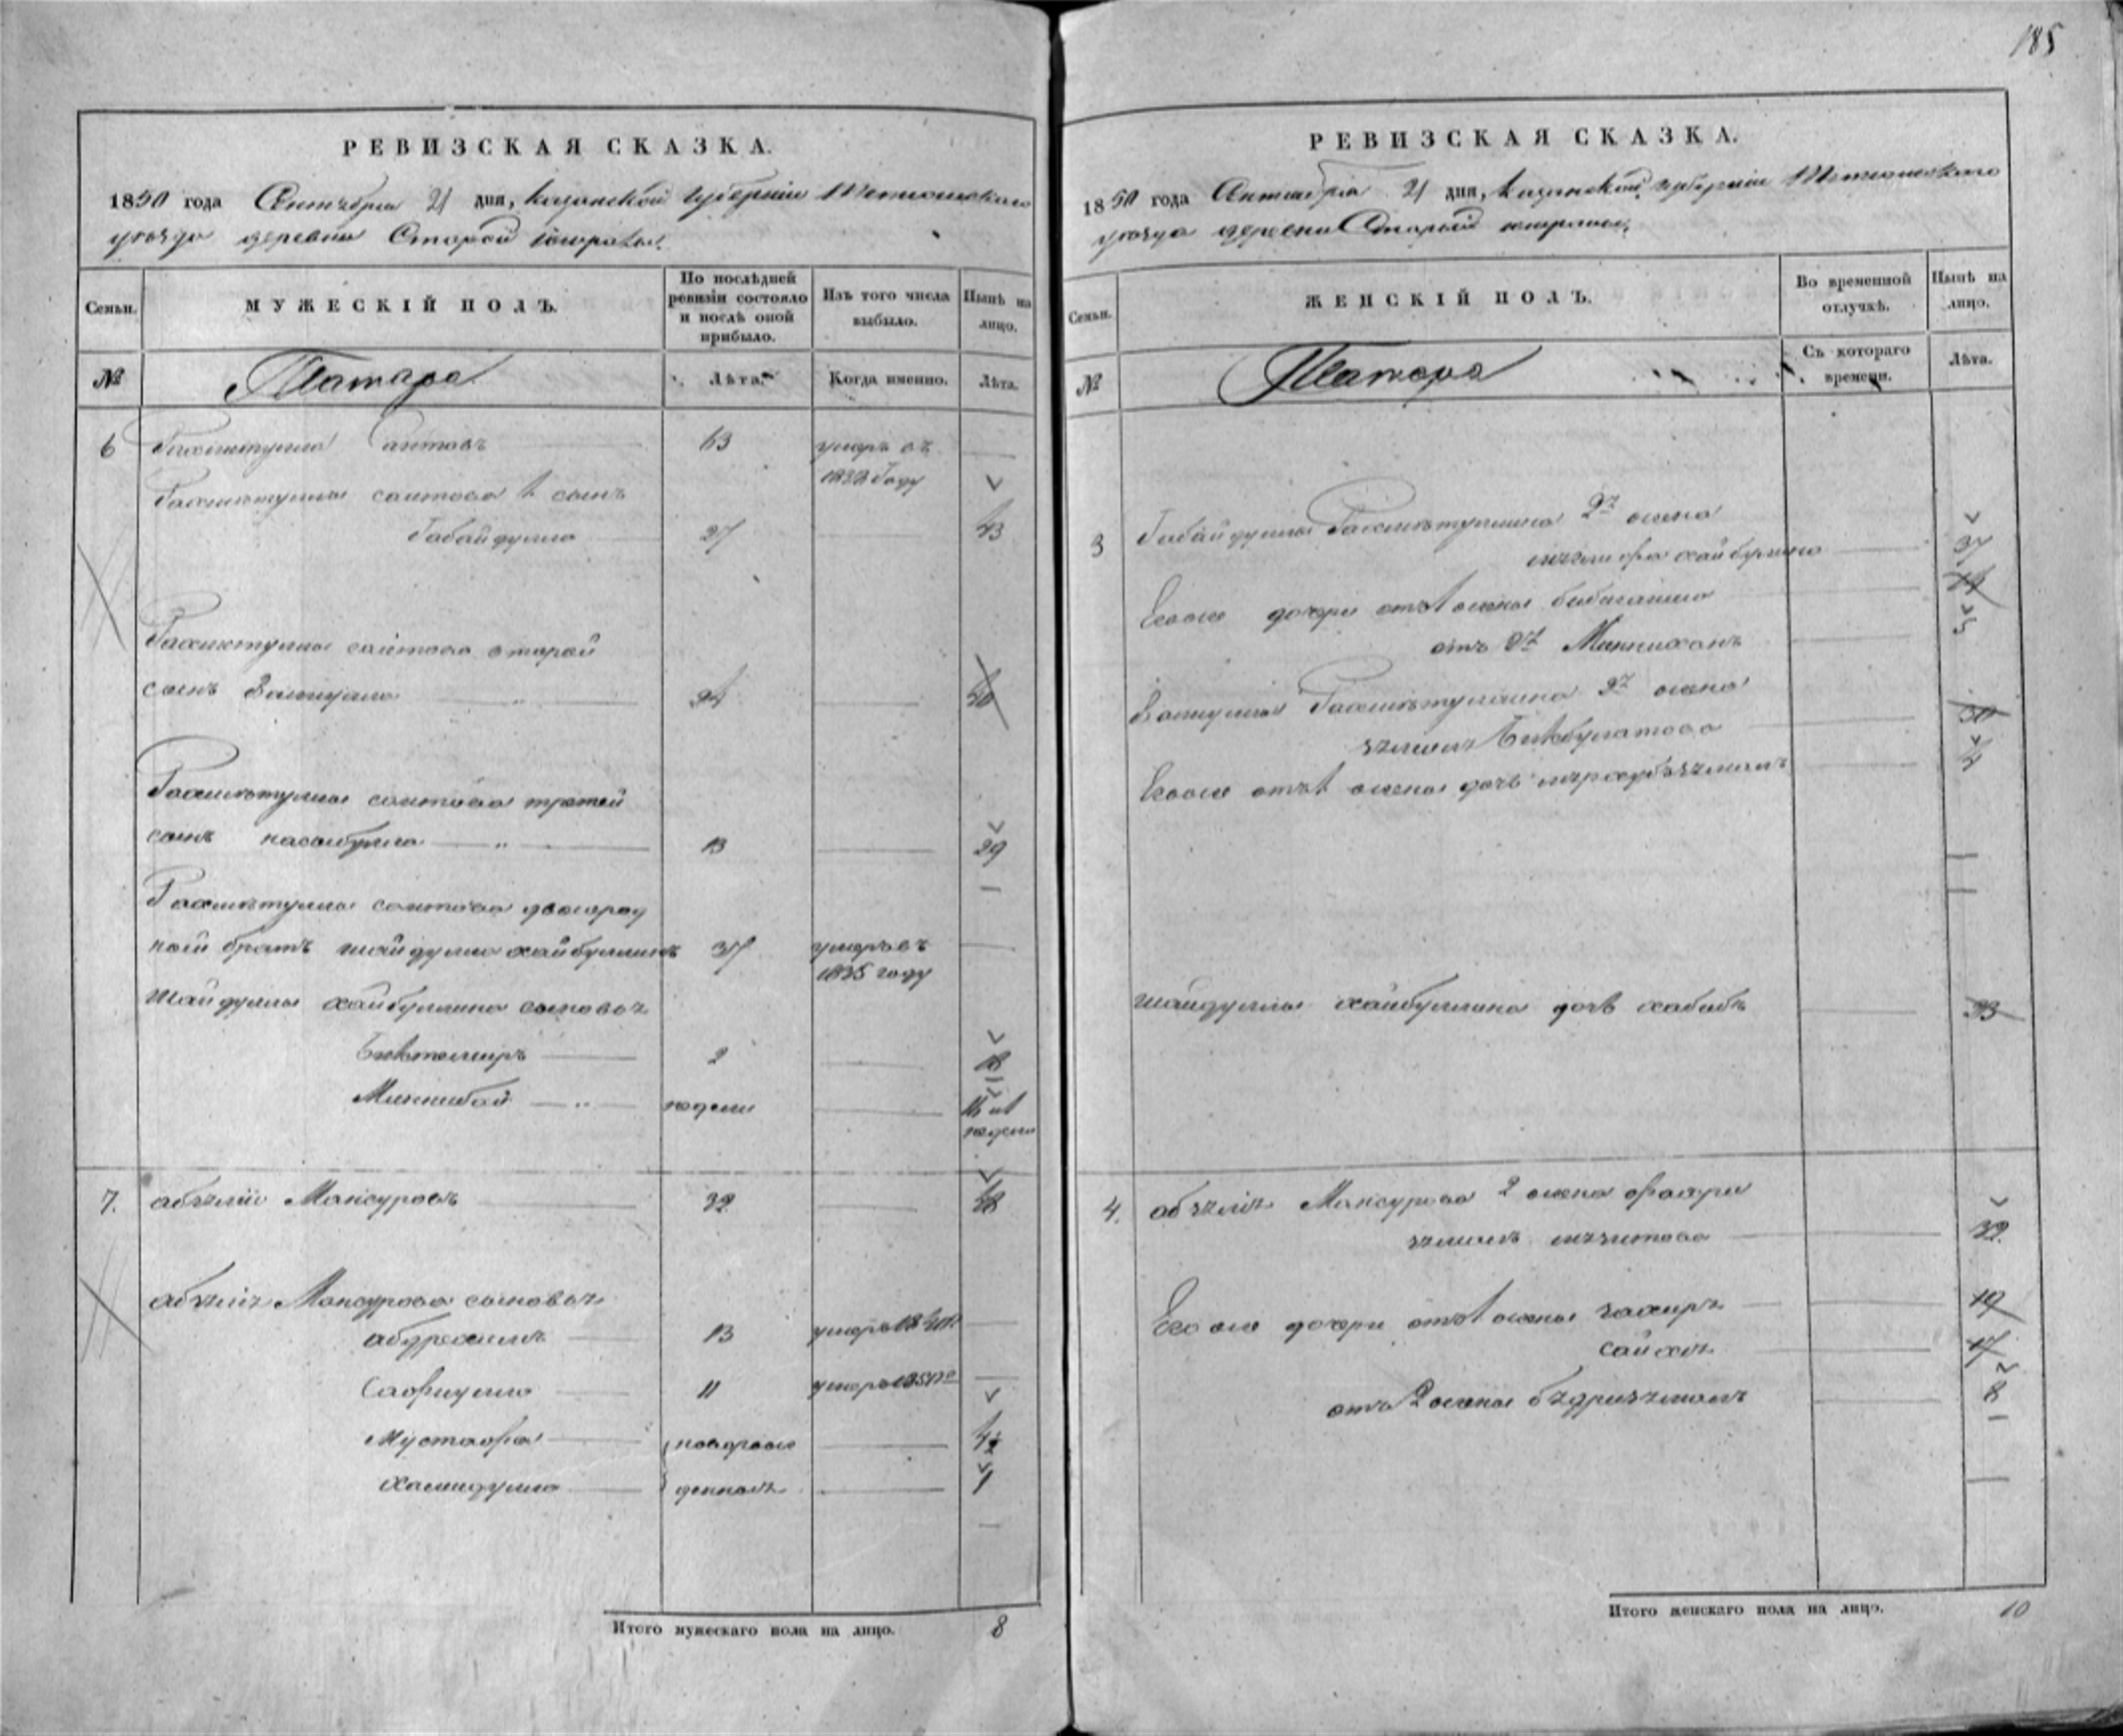 185
РЕВИЗСКАЯ СКАЗКА.
1850 года Сентября 21 дня, казанской губернии Тетюшскаго
уезда деревни Старой
Семьи.
МУЖЕСКІЙ ПОЛЪ.
По послѣдней ревизіи состояло и послѣ оной прибыло.
Изъ того числа выбыло.
Нынѣ на лицо.
№
Татара
Лѣта.
Когда именно.
Лѣта.
6 Рахметулла Саитовъ 63 умеръ въ
году
Рахметуллы саитова 1 сынъ
Габайдулла 27 43
Рахметуллы саитова вторай
сынъ Валиулла 24 40
Рахметуллы саитова третей
сынъ насыбулла 13 29
Рахметуллы саитова двоюрод
ной братъ шайдулла хайбуллинъ 37 умеръ въ
1835 году
Шайдуллы хайбуллина сыновья
Бектемиръ 2 18
Миннибай недели 16 и 1
недели
7. абзелил Мансуровъ 32 48
абзелил Мансурова сыновья
абдрахимъ 13 умеръ
Сафиулла 11 умеръ
Мустафа новорож
Хамидулла денной 1
Итого мужескаго пола на лицо. 8
РЕВИЗСКАЯ СКАЗКА.
1850 года Сентября 21 дня, казанской губерніи Тетюшскаго
уезда деревни Старой
Семьи.
ЖЕНСКІЙ ПОЛЪ.
Во временной отлучкѣ.
Нынѣ на лицо.
№
Татара
Съ котораго времени.
Лѣта.
3 Габайдуллы Рахметуллина 2я жена
хайбуллина 37
Ево же дочери отъ 1 жены
отъ 2й Минниханъ 5
Валиуллы Рахметуллина 2я жена
Бикбулатова 30
Ево же отъ 1 жены дочь
шайдуллы хайбуллина дочь хабибъ 33
4. абзелил Мансурова 2 жена фахри
земинъ 32
Ево же дочери отъ 1 жены 19
17
отъ 2 жены бедриземанъ 8
Итого женскаго пола на лицо. 10